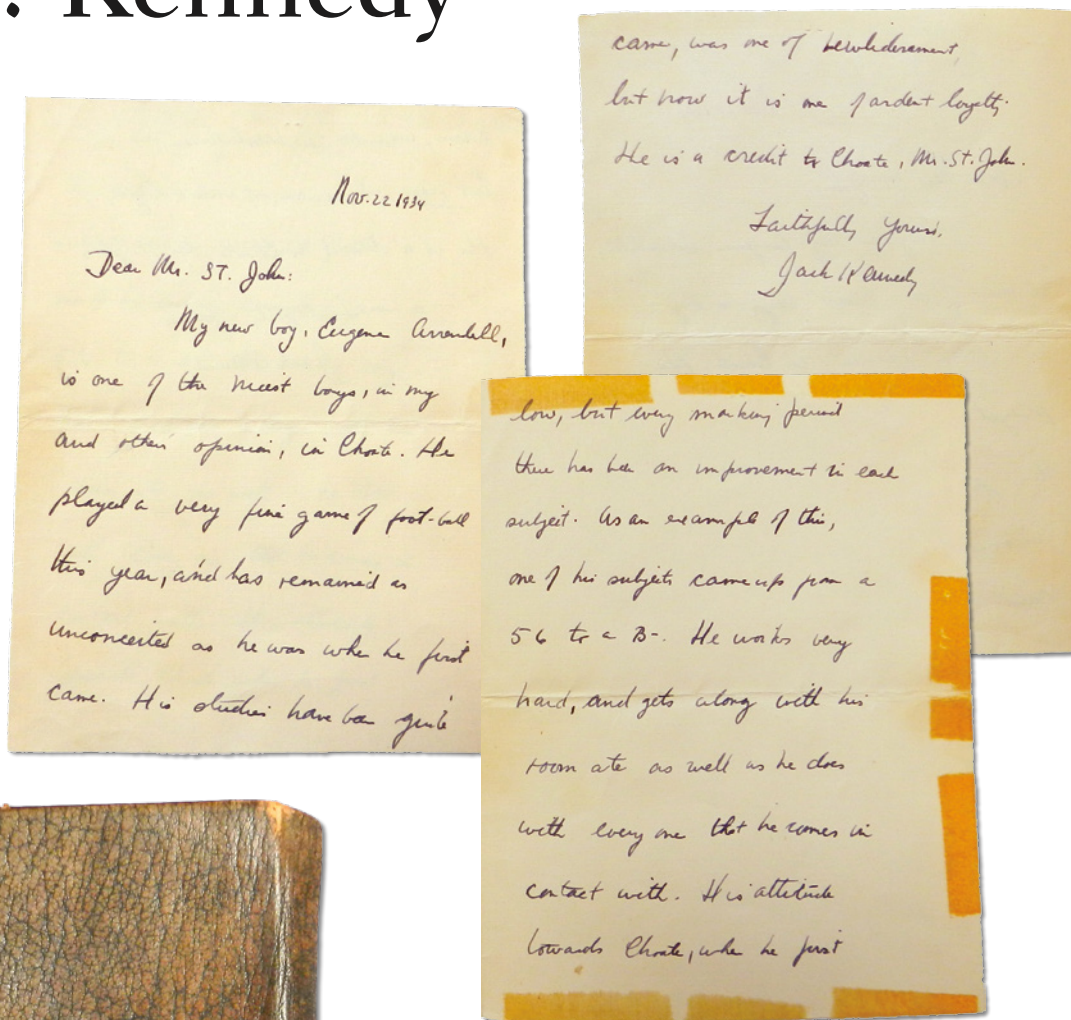 . Kennedy
Nov. 22 1934
Dear Mr. ST. John:
My new boy, Eugene Arrendell,
is one of the nicest boys, in my
and others opinion, in Choate. He
played a very fine game of foot-ball
this year, and has remained as
unconceited as he was when he first
came. His studies have been quite
low, but every marking period
there has been an improvement in each
subject. As an example of this,
one of his subjects came up from a
56 to a B-. He works very
hard, and gets along with his
room ate as well as he does
with every one that he comes in
contact with. His attitude
towards Choate, when he first
came, was one of bewilderment,
but now it is one of ardent loyalty.
He is a credit to Choate, Mr. St. John.
Faithfully Yours,
Jack Kennedy